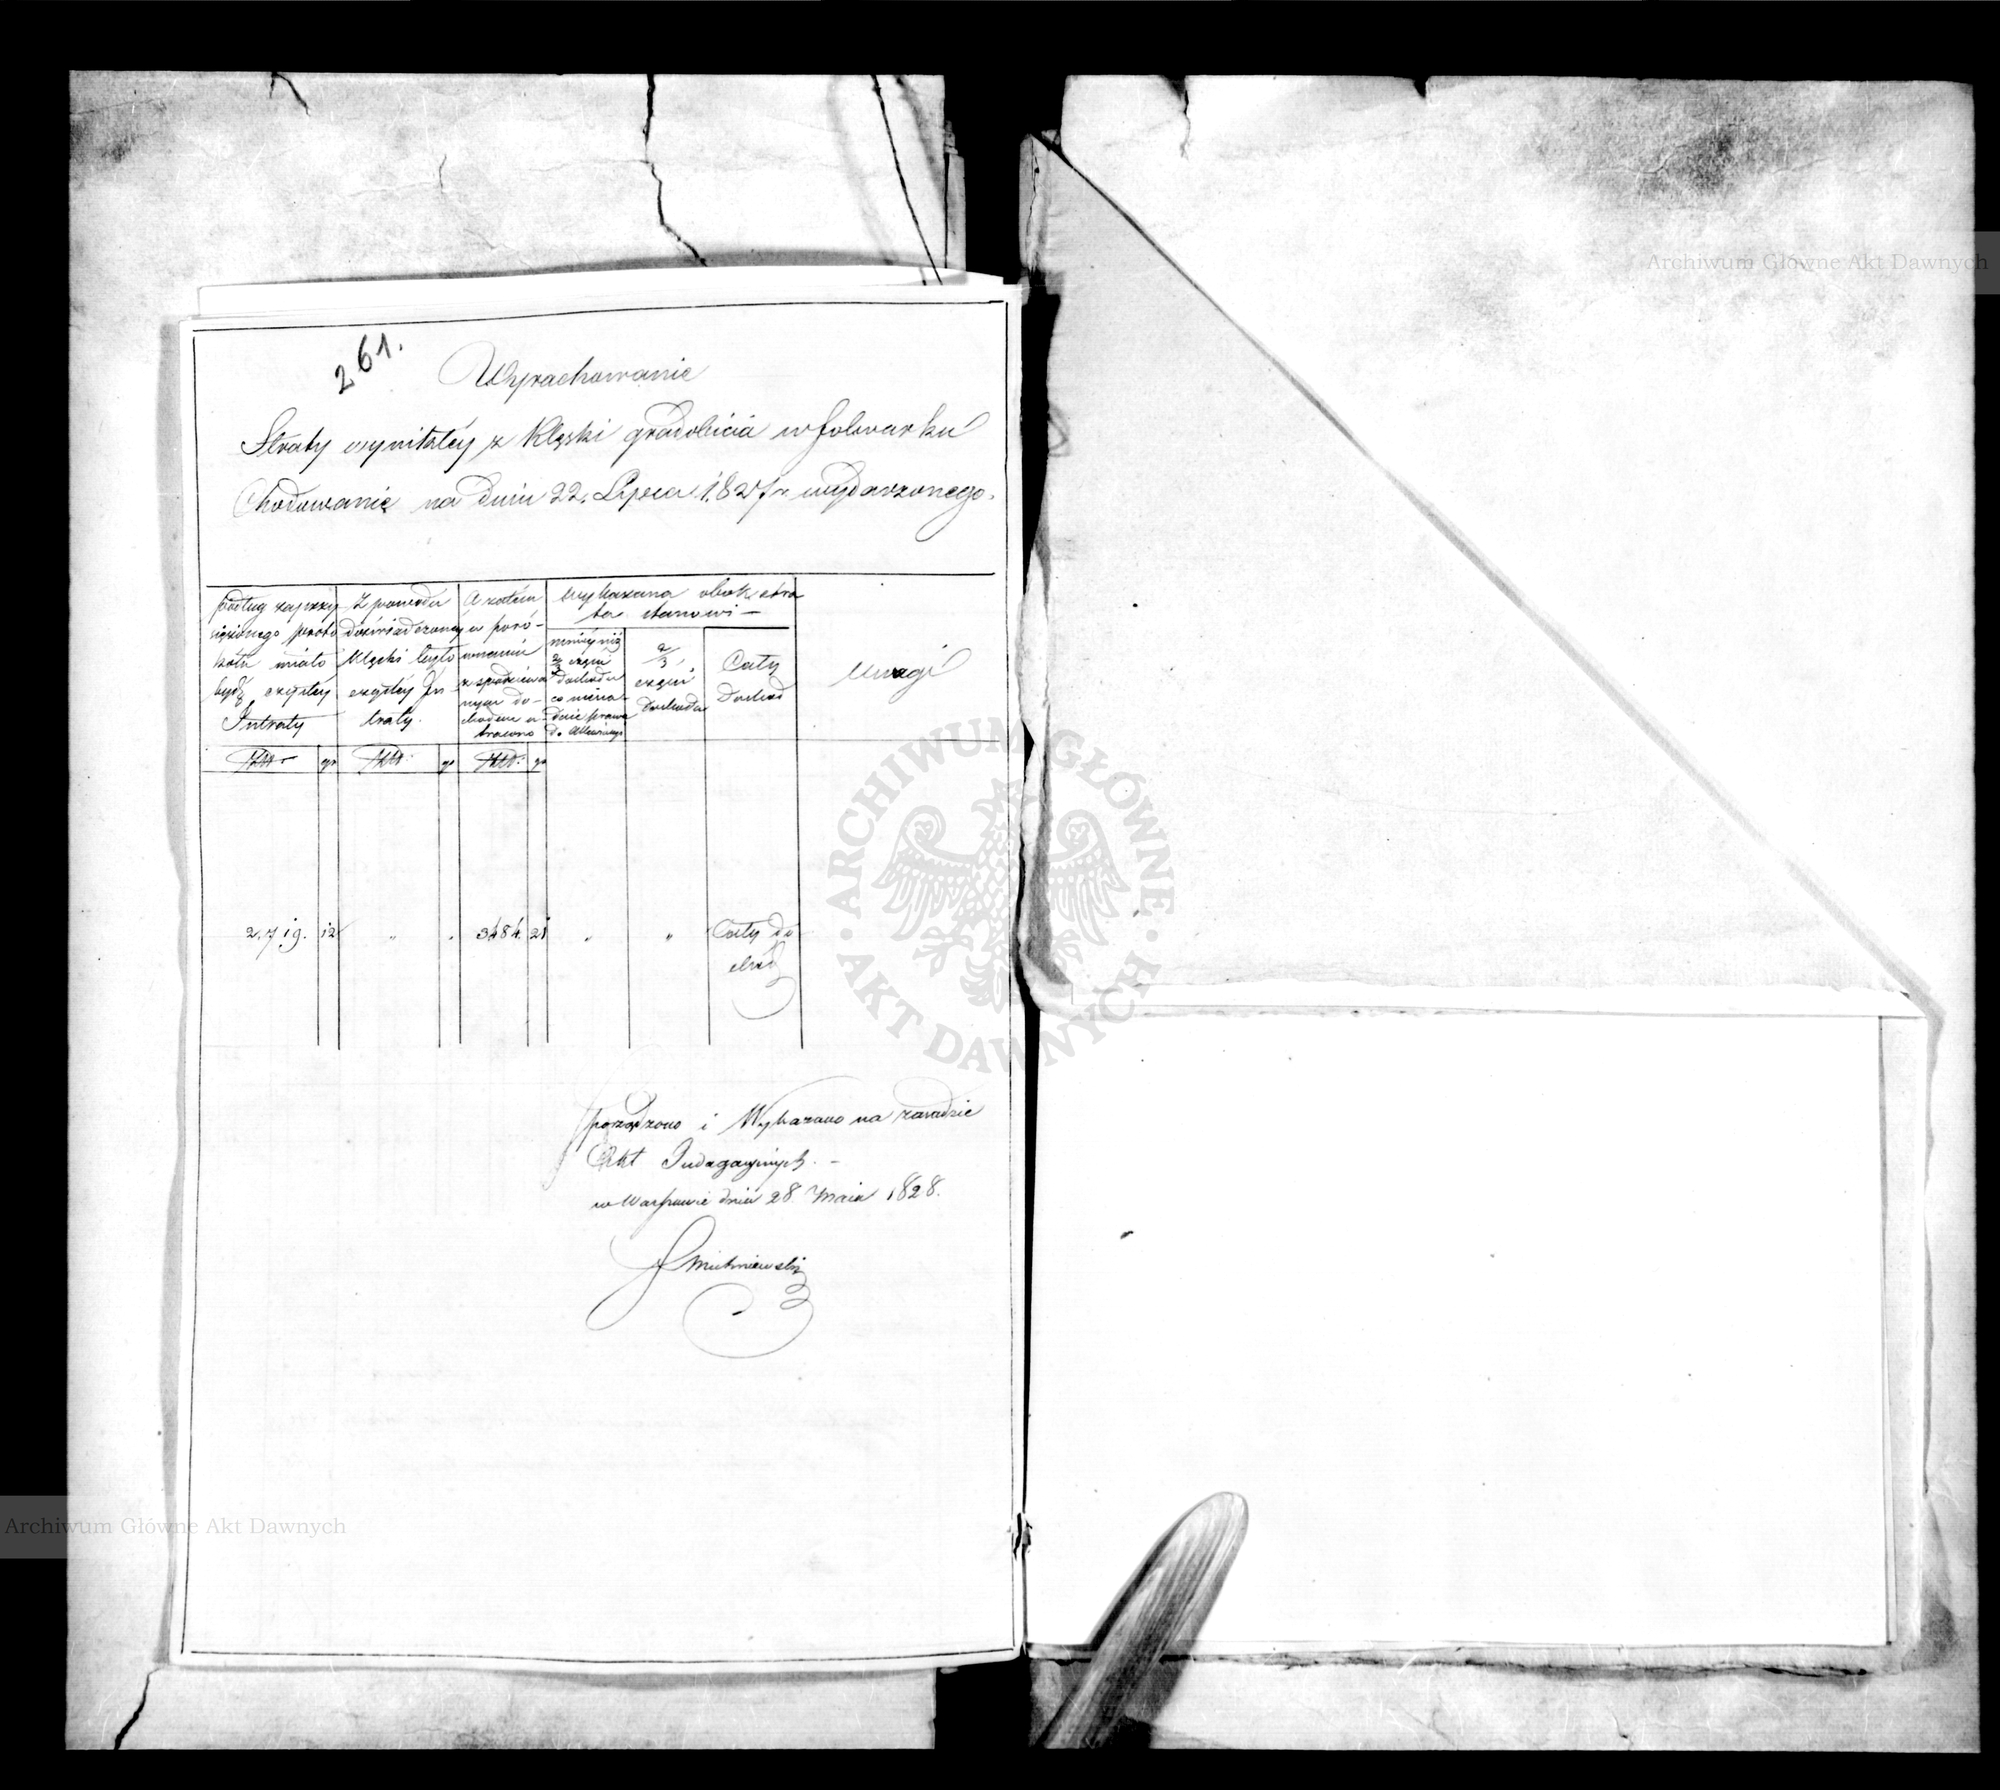 261.
Wyrachowanie
Straty wynikłéy z Klęski gradobicia w folwarku
Chodowanie na dniu 22. Lipca 1827 r. wydarzonego.
podług zaprzy
siężonego proto
kołu miało
bydź czystéy
Intraty
Z powodu
doświadczonéy
Klęski było
czystéy In
traty.
A zatém
w poró-
wnaniu
z spodziewa
nym do-
chodem u
tracono
wykazana obok stra
ta stanowi —
mniéy niż
2/3 części
dochodu
co nie na-
daie prawa
do
2/3
części
dochodu
Cały
dochód
Uwagi
gr
gr
gr
2.719. 12 „ . 3484. 21 „ „ Cały do
chód
Sporządzono i Wykazano na zasadzie
Akt Indagacyjnych. —
w Warszawie dnia 28. Maia 1828.
Archiwum Główne Akt Dawnych
ARCHIWUM GŁÓWNE
AKT DAWNYCH
Archiwum Główne Akt Dawnych